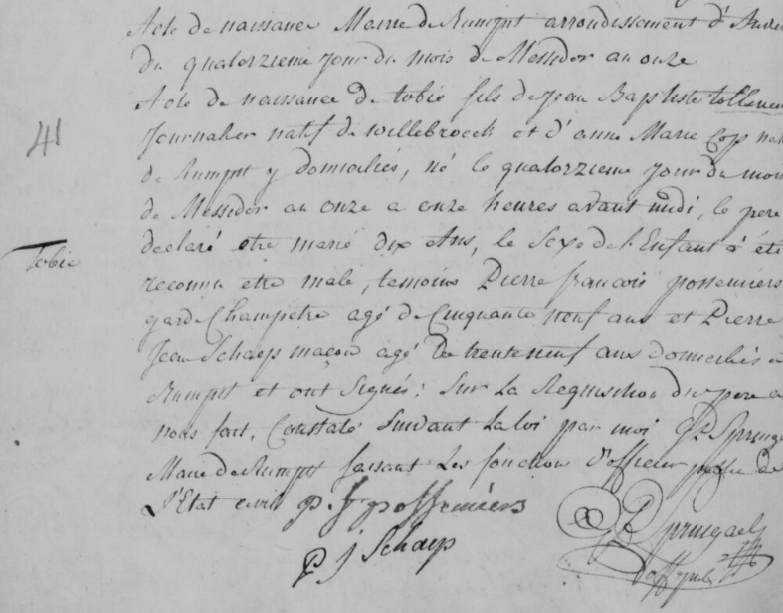 Acte de naissance Mairie de Rumpst arrondissement d'
du quatorzieme jour du mois de Messidor an onze
41
Acte de naissance de tobie fils de jean Baptiste
journalier natif de willebroeck et d'anne Marie Cop nat
de Rumpst y domiciliés, né le quatorzieme jour du mois
de Messidor an onze a onze heures avant midi, le pere
Tobie
declaré etre marié dix Ans, le Sexe de l'Enfant a été
reconnu etre male, temoins Pierre francois possemiers
garde Champetre agé de Cinquante neuf ans et Pierre
Jean Schaep maçon agé de trente neuf ans domiciliés a
Rumpst et ont Signés; Sur La Requisition du pere a
nous fait, Constaté Suivant La loi par moi
Maire de Rumpst faisant Les fonction d'officier de
L'Etat civil
p. f. possemiers
P J Schaep